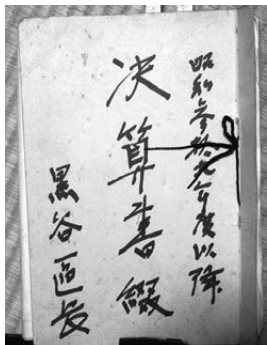 昭和参拾九年度以降
決算書綴
黒谷区長